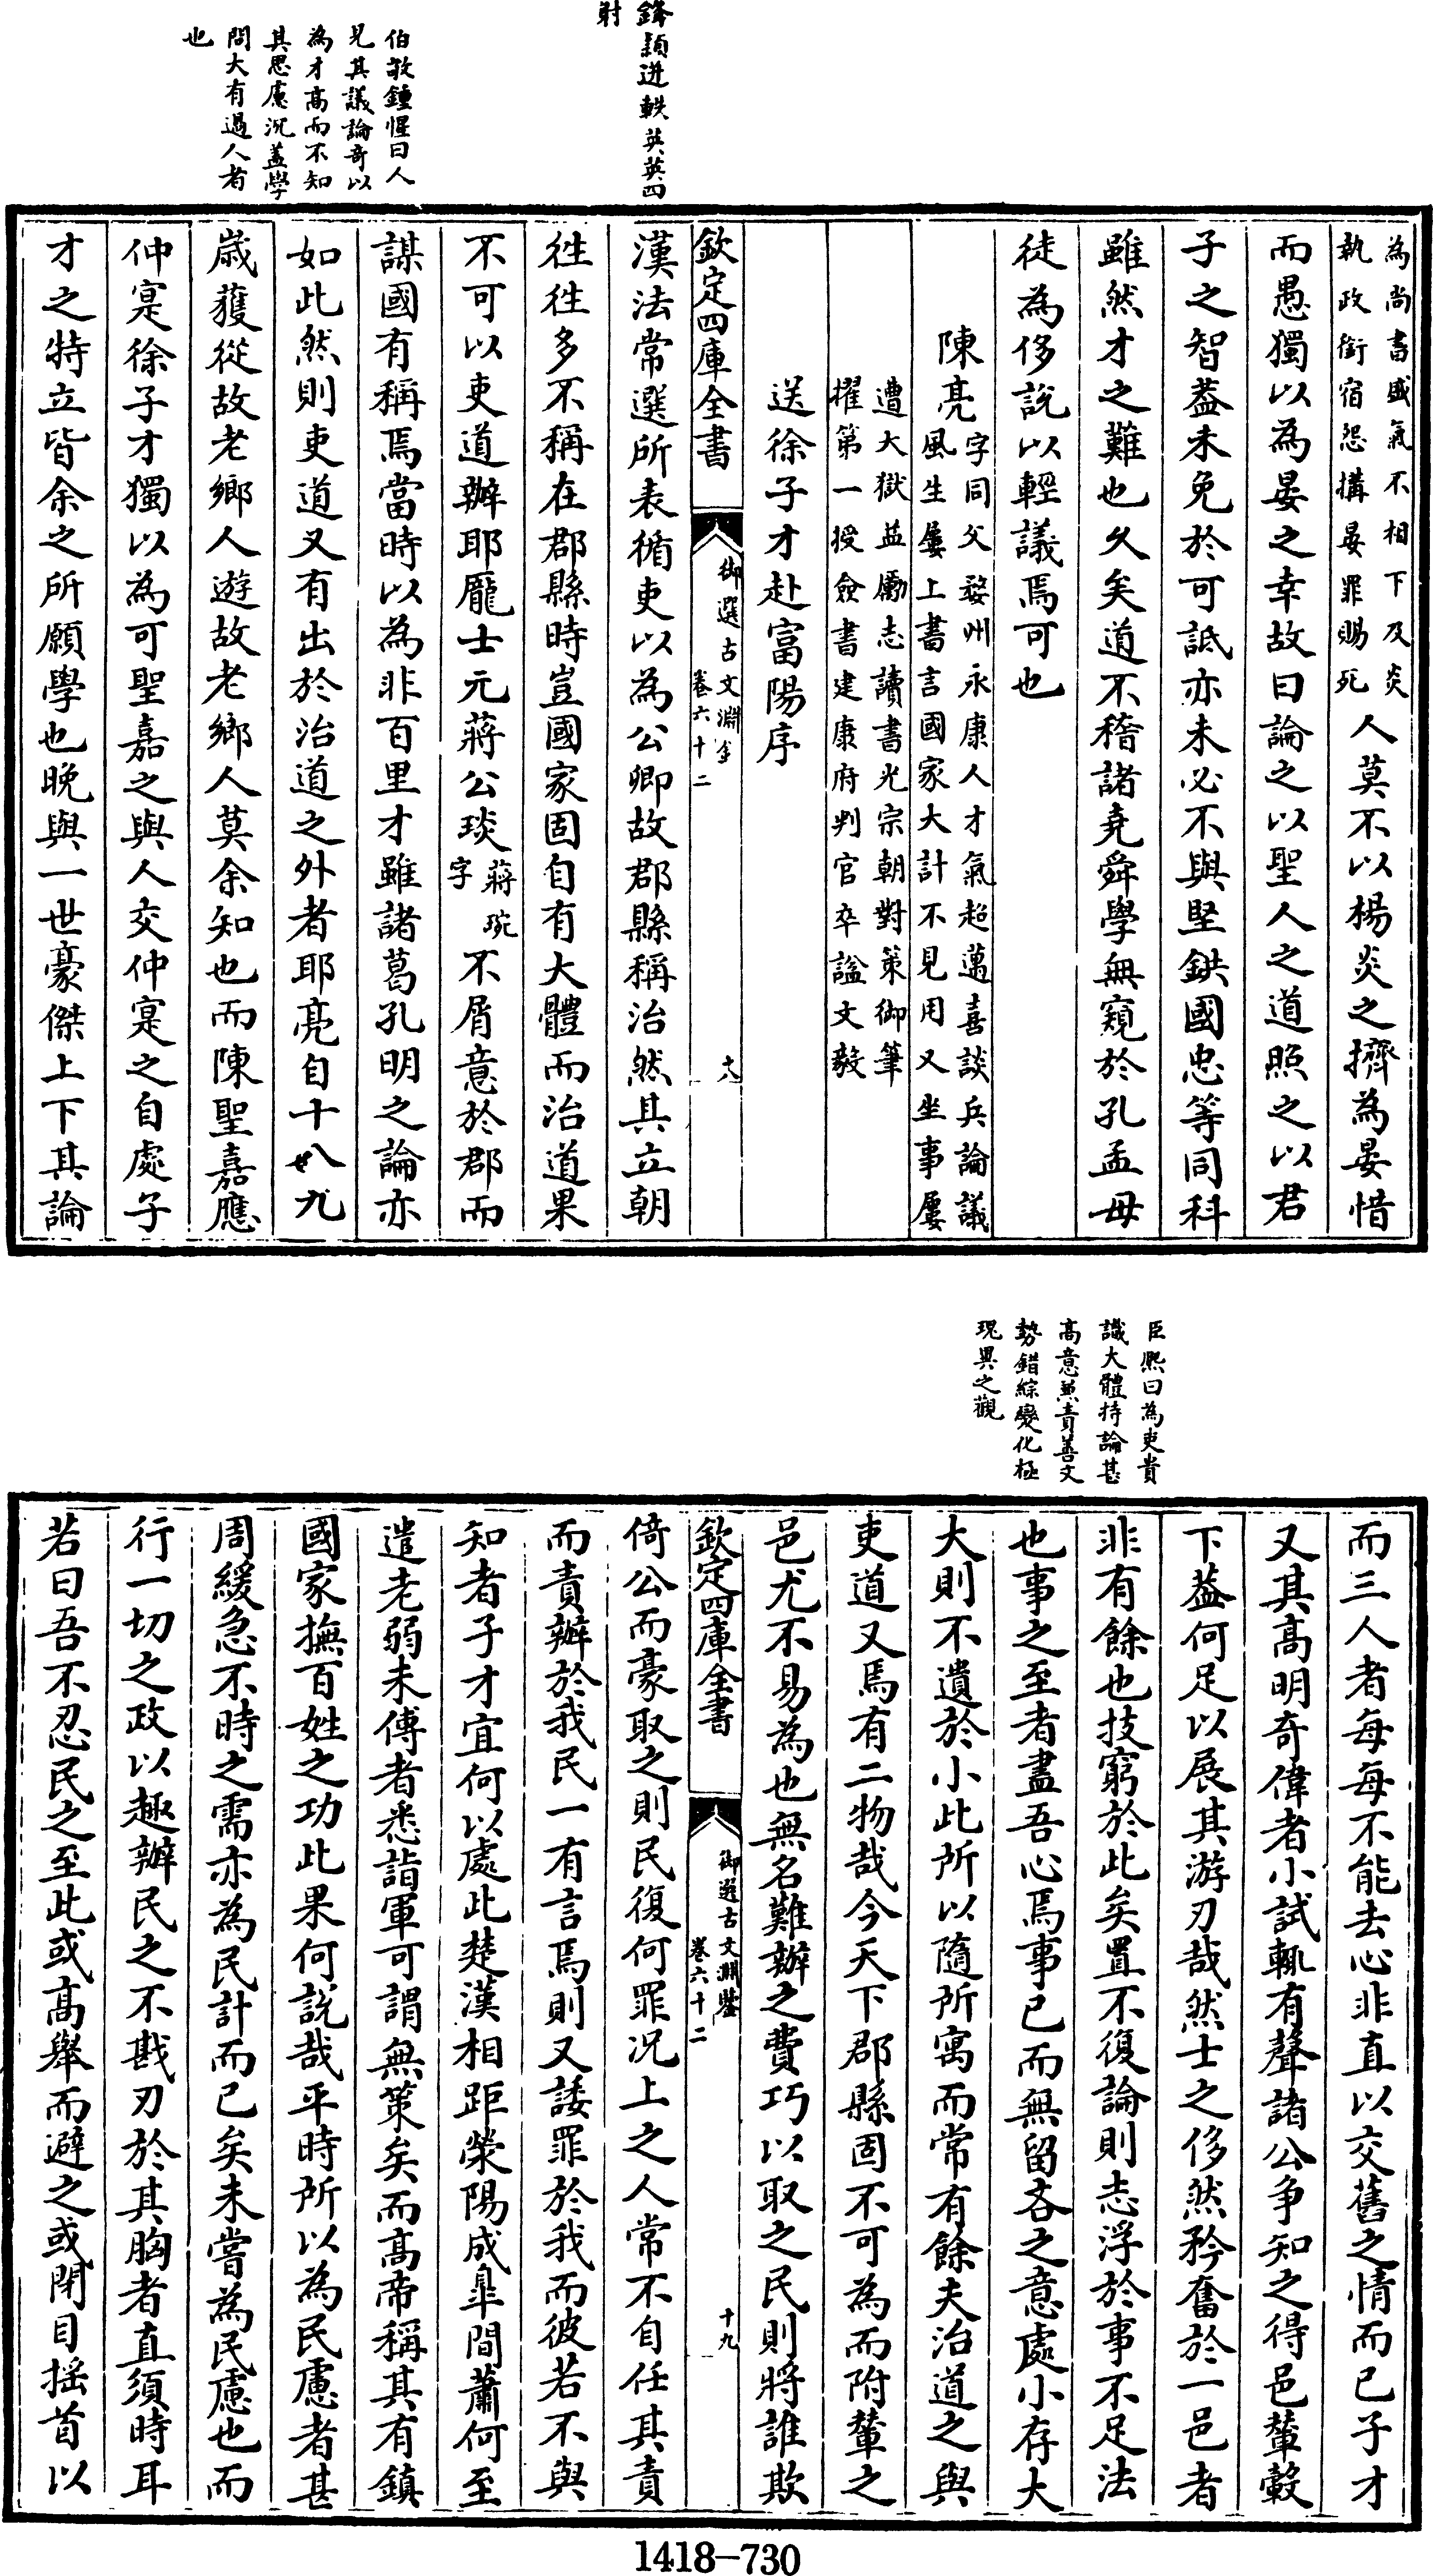 鋒頴迸軼英英四
射
伯敬鍾惺曰人
見其議論奇以
為才髙而不知
其思慮沉葢學
問大有過人者
也
為尚書盛氣不相下及炎
執政銜宿怨搆晏罪賜死人莫不以楊炎之擠為晏惜
而愚獨以為晏之幸故曰論之以聖人之道照之以君
子之智葢未免於可詆亦未必不與堅鉷國忠等同科
雖然才之難也久矣道不稽諸堯舜學無窺於孔孟毋
徒為侈説以輕議焉可也
陳亮字同父婺州永康人才氣超邁喜談兵論議
風生屢上書言國家大計不見用又坐事屢
遭大獄益勵志讀書光宗朝對策御筆
擢第一授僉書建康府判官卒諡文毅
送徐子才赴富陽序
欽定四庫全書
御選古文淵鑒
卷六十二
十八
漢法常選所表循吏以為公卿故郡縣稱治然其立朝
徃徃多不稱在郡縣時豈國家固自有大體而治道果
不可以吏道辦耶龎士元蔣公琰蔣琬
字不屑意於郡而
謀國有稱焉當時以為非百里才雖諸葛孔明之論亦
如此然則吏道又有出於治道之外者耶亮自十八九
嵗獲從故老鄉人遊故老鄉人莫余知也而陳聖嘉應
仲寔徐子才獨以為可聖嘉之與人交仲寔之自處子
才之特立皆余之所願學也晚與一世豪傑上下其論
臣熙曰為吏貴
識大體持論甚
髙意兼責善文
勢錯綜變化極
瑰異之觀
而三人者每每不能去心非直以交舊之情而已子才
又其髙明奇偉者小試輒有聲諸公争知之得邑輦轂
下葢何足以展其游刃哉然士之侈然矜奮於一邑者
非有餘也技窮於此矣置不復論則志浮於事不足法
也事之至者盡吾心焉事已而無留吝之意處小存大
大則不遺於小此所以隨所寓而常有餘夫治道之與
吏道又焉有二物哉今天下郡縣固不可為而附輦之
邑尤不易為也無名難辦之費巧以取之民則將誰欺
欽定四庫全書
御選古文淵鑒
卷六十二
十九
倚公而豪取之則民復何罪况上之人常不自任其責
而責辦於我民一有言焉則又諉罪於我而彼若不與
知者子才宜何以處此楚漢相距滎陽成臯間蕭何至
遣老弱未傅者悉詣軍可謂無策矣而髙帝稱其有鎮
國家撫百姓之功此果何説哉平時所以為民慮者甚
周緩急不時之需亦為民計而已矣未嘗為民慮也而
行一切之政以趣辦民之不戡刃於其胸者直須時耳
若曰吾不忍民之至此或髙舉而避之或閉目揺首以
1418-730